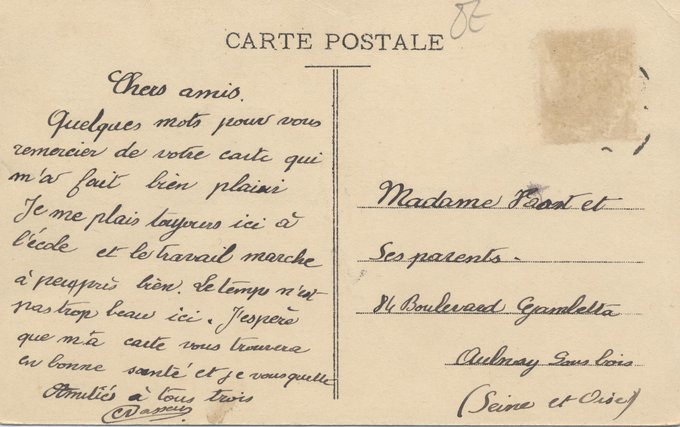 CARTE POSTALE
Chers amis.
Quelques mots pour vous
remercier de votre carte qui
m'a fait bien plaisir
Je me plais toujours ici à
l'école et le travail marche
à peuprès bien. Le temps n'est
pas trop beau ici. J'espère
que m'a carte vous trouvera
en bonne santé et je vous quitte
Amitiés à tous trois
Madame et
Ses parents.
84 Boulevard Gambetta
Aulnay sous bois
(Seine et Oise)